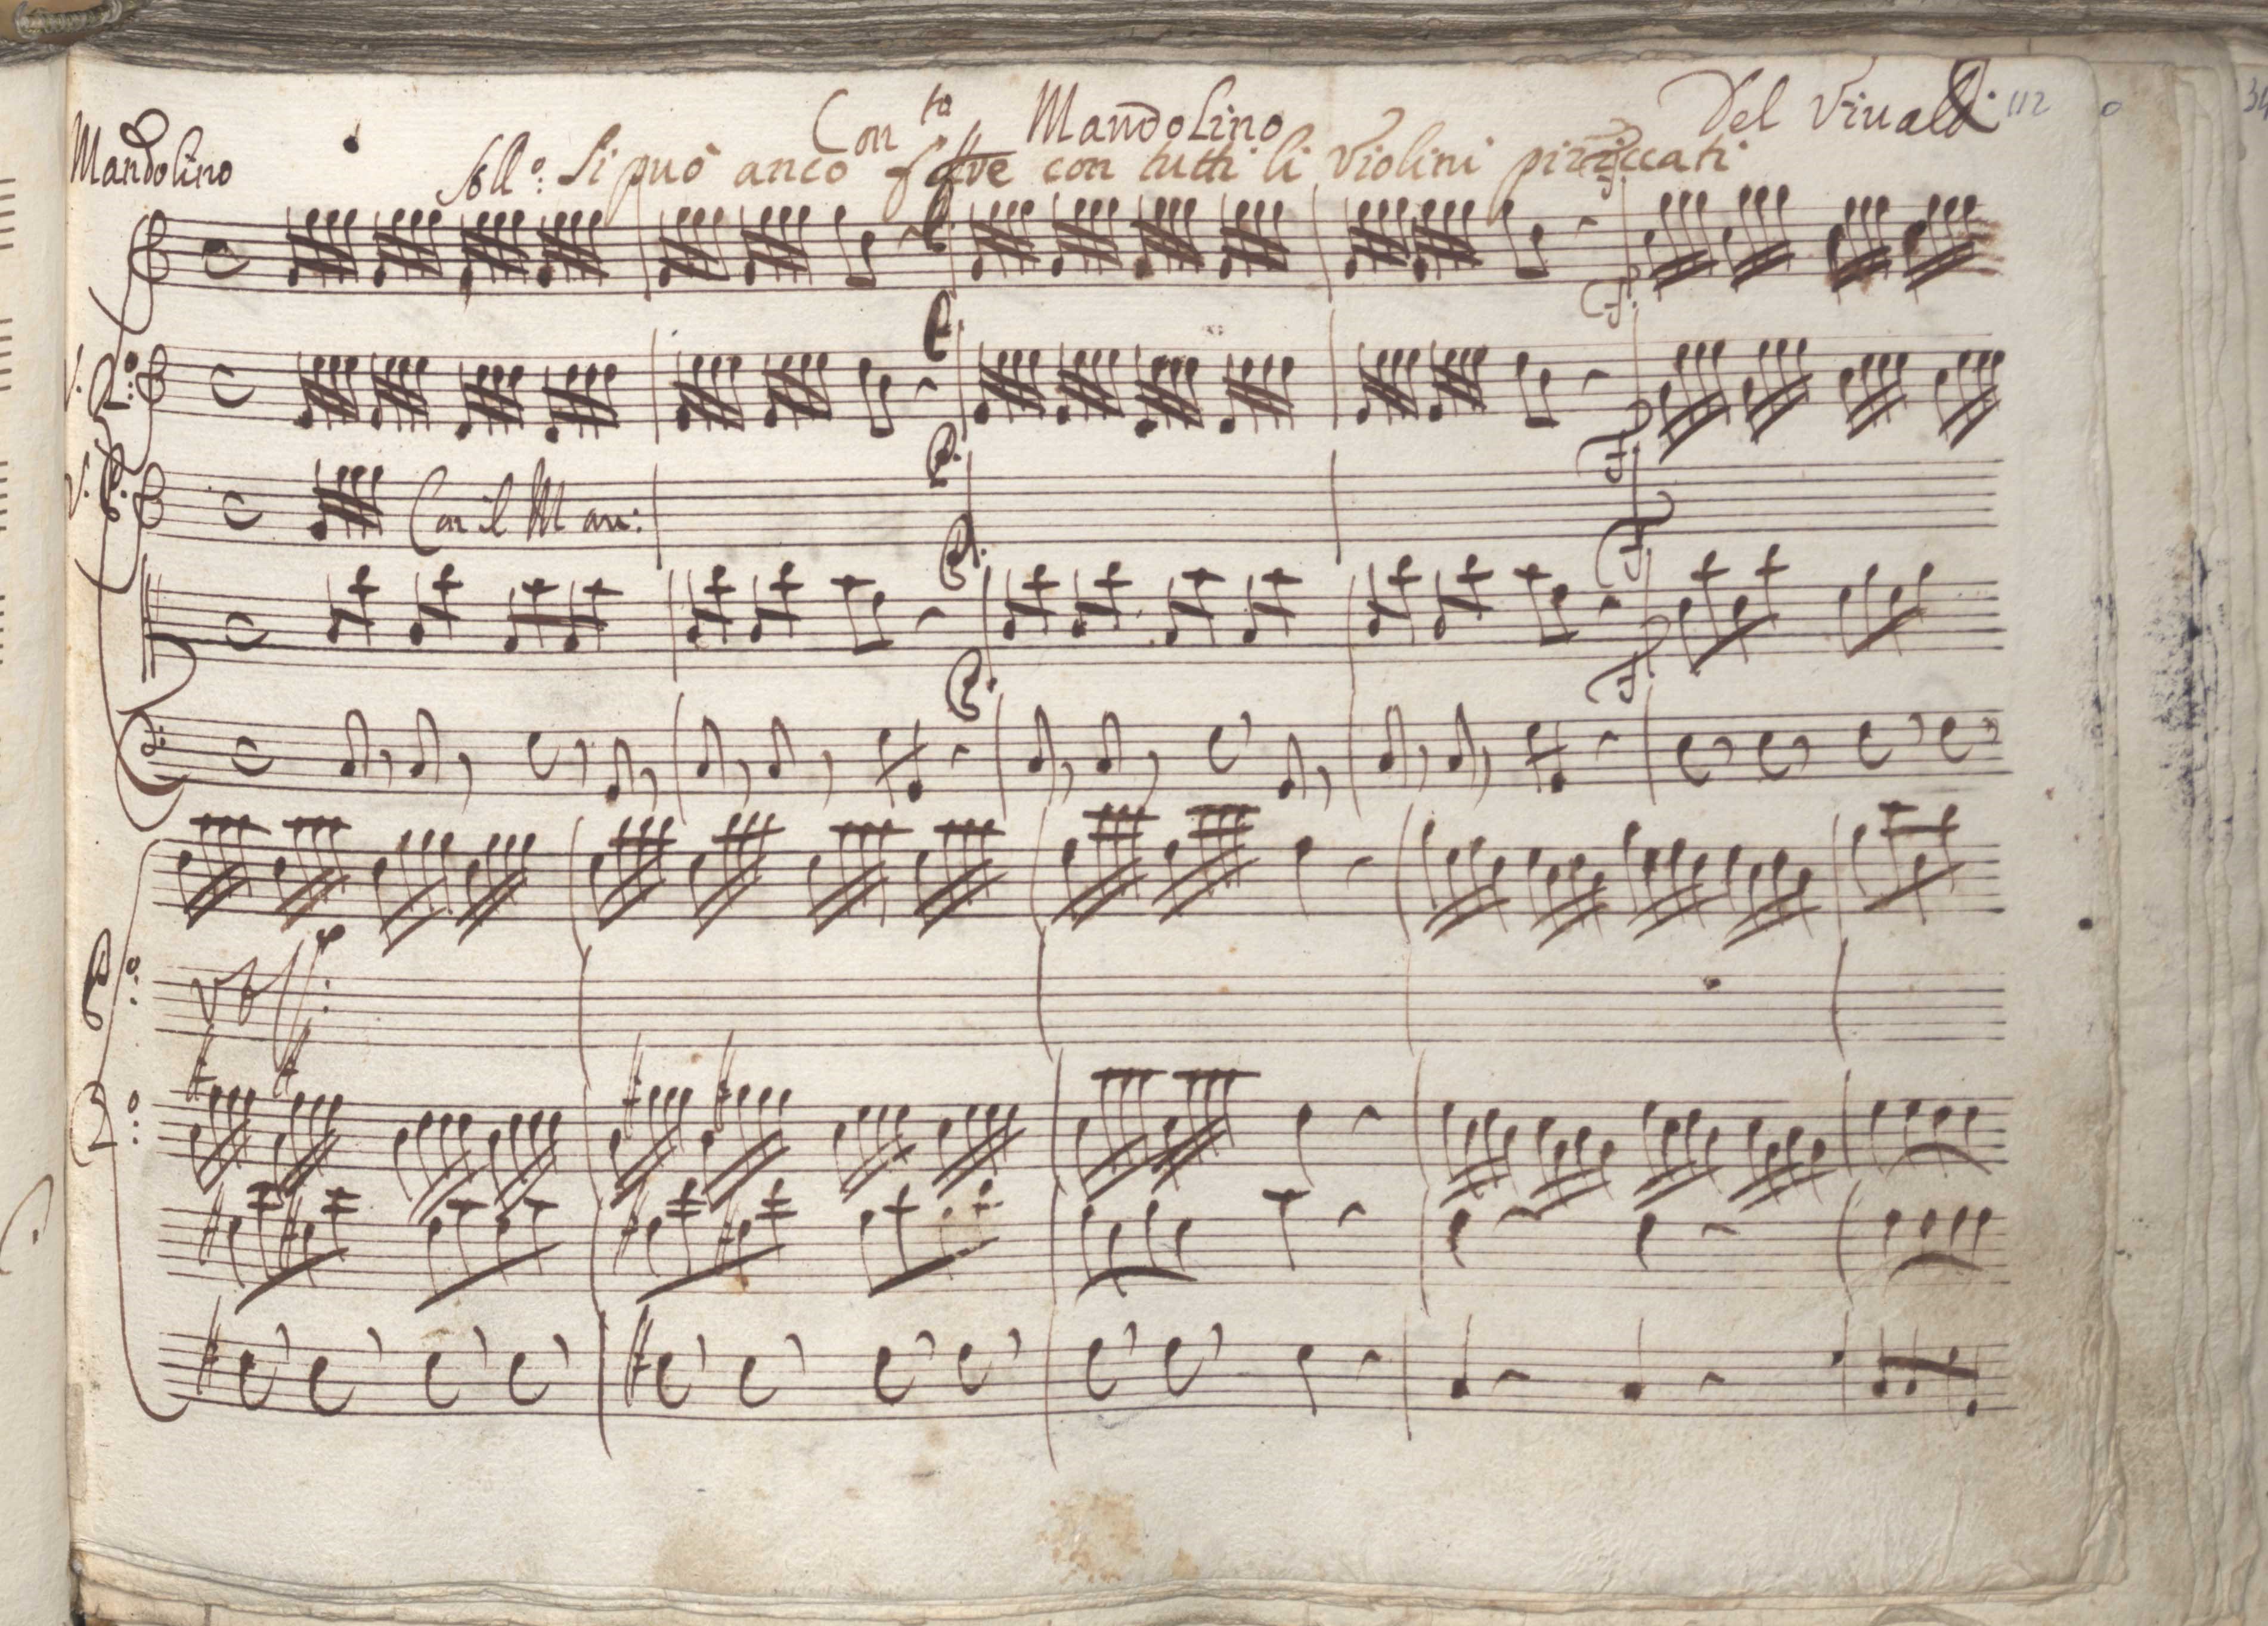 Con to Mandolino Del Vivaldi 112
Mandolino All°: Si può anco fare con tutti li Violini pizziccati
P.
f.
V. 2°: P.
V. P. Con il Man: P.
f.
P.
f.
P.
f.
P°:
2°: